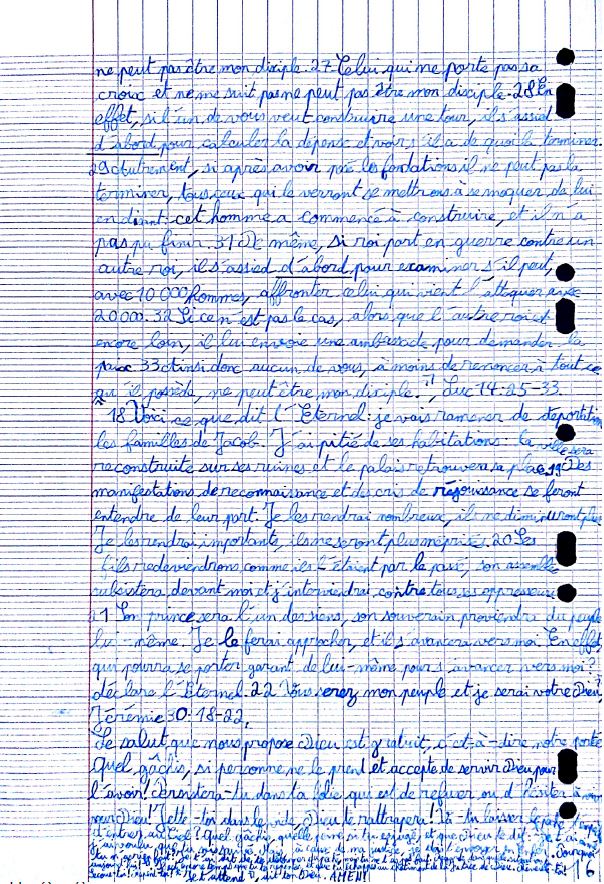 ne peut pas être mon disciple. 27 Celui qui ne porte pas sa
croix et ne me suit pas ne peut pas être mon disciple. 28 En
effet, si l'un de vous veut construire une tour, il s'assied
d'abord pour calculer la dépense et voir s'il a de quoi la terminer.
29 Autrement, si après avoir posé les fondations il ne peut pas la
terminer, tous ceux qui le verront se mettrons à se moquer de lui
en disant: cet homme a commencé à construire, et il n'a
pas pu finir. 31 De même, si roi part en guerre contre un
autre roi, il s'assied d'abord pour examiner s'il peut,
avec 10 000 hommes, affronter celui qui vient l'attaquer avec
20 000. 32 Si ce n'est pas le cas, alors que l'autre roi est
encore loin, il lui envoie une ambassade pour demander la
paix 33 Ainsi donc aucun de vous, à moins de renoncer à tout ce
qu'il possède, ne peut être mon disciple.", Luc 14:25-33.
"18 Voici ce que dit l'Eternel: je vais ramener de déportation
les familles de Jacob. J'ai pitié de ses habitations: la ville sera
reconstruite sur ses ruines et le palais retrouvera sa place 19 Des
manifestations de reconnaissance et des cris de réjouissance se feront
entendre de leur part. Je les rendrai nombreux, ils ne diminueront plus
Je les rendrai importants, ils ne seront plus méprisé. 20 Ses
fils redeviendrons comme ils l'étaient par le passé, son assemblée
subsistera devant moi et j'interviendrai contre tous ses oppresseurs
21 Son prince sera l'un des siens, son souverain proviendra du peuple
lui-même. Je le ferai approcher, et il s'avancera vers moi. En effet,
qui pourra se porter garant de lui-même pour s'avancer vers moi?
déclare l'Eternel. 22 Vous serez mon peuple et je serai votre Dieu",
Jérémie 30:18-22.
Le salut que nous propose Dieu est gratuit, c'est-à-dire notre portée
Quel gâchis, si personne ne le prend et accepte de servir Dieu pour
l'avoir! Persistera-tu dans ta folie qui est de refuser ou d'hésiter à
pour Dieu! Jette-toi dans le vide, Dieu te rattrapera! Va-tu laisser le
d'entrer au Ciel? Quel gâchis, quelle peine si tu refuse, et que Dieu te dit: Je t'ai
j'ai voulu que tu sois à cause de ma justice, je dois
Je t'attend", dit ton Dieu. AMEN!
16